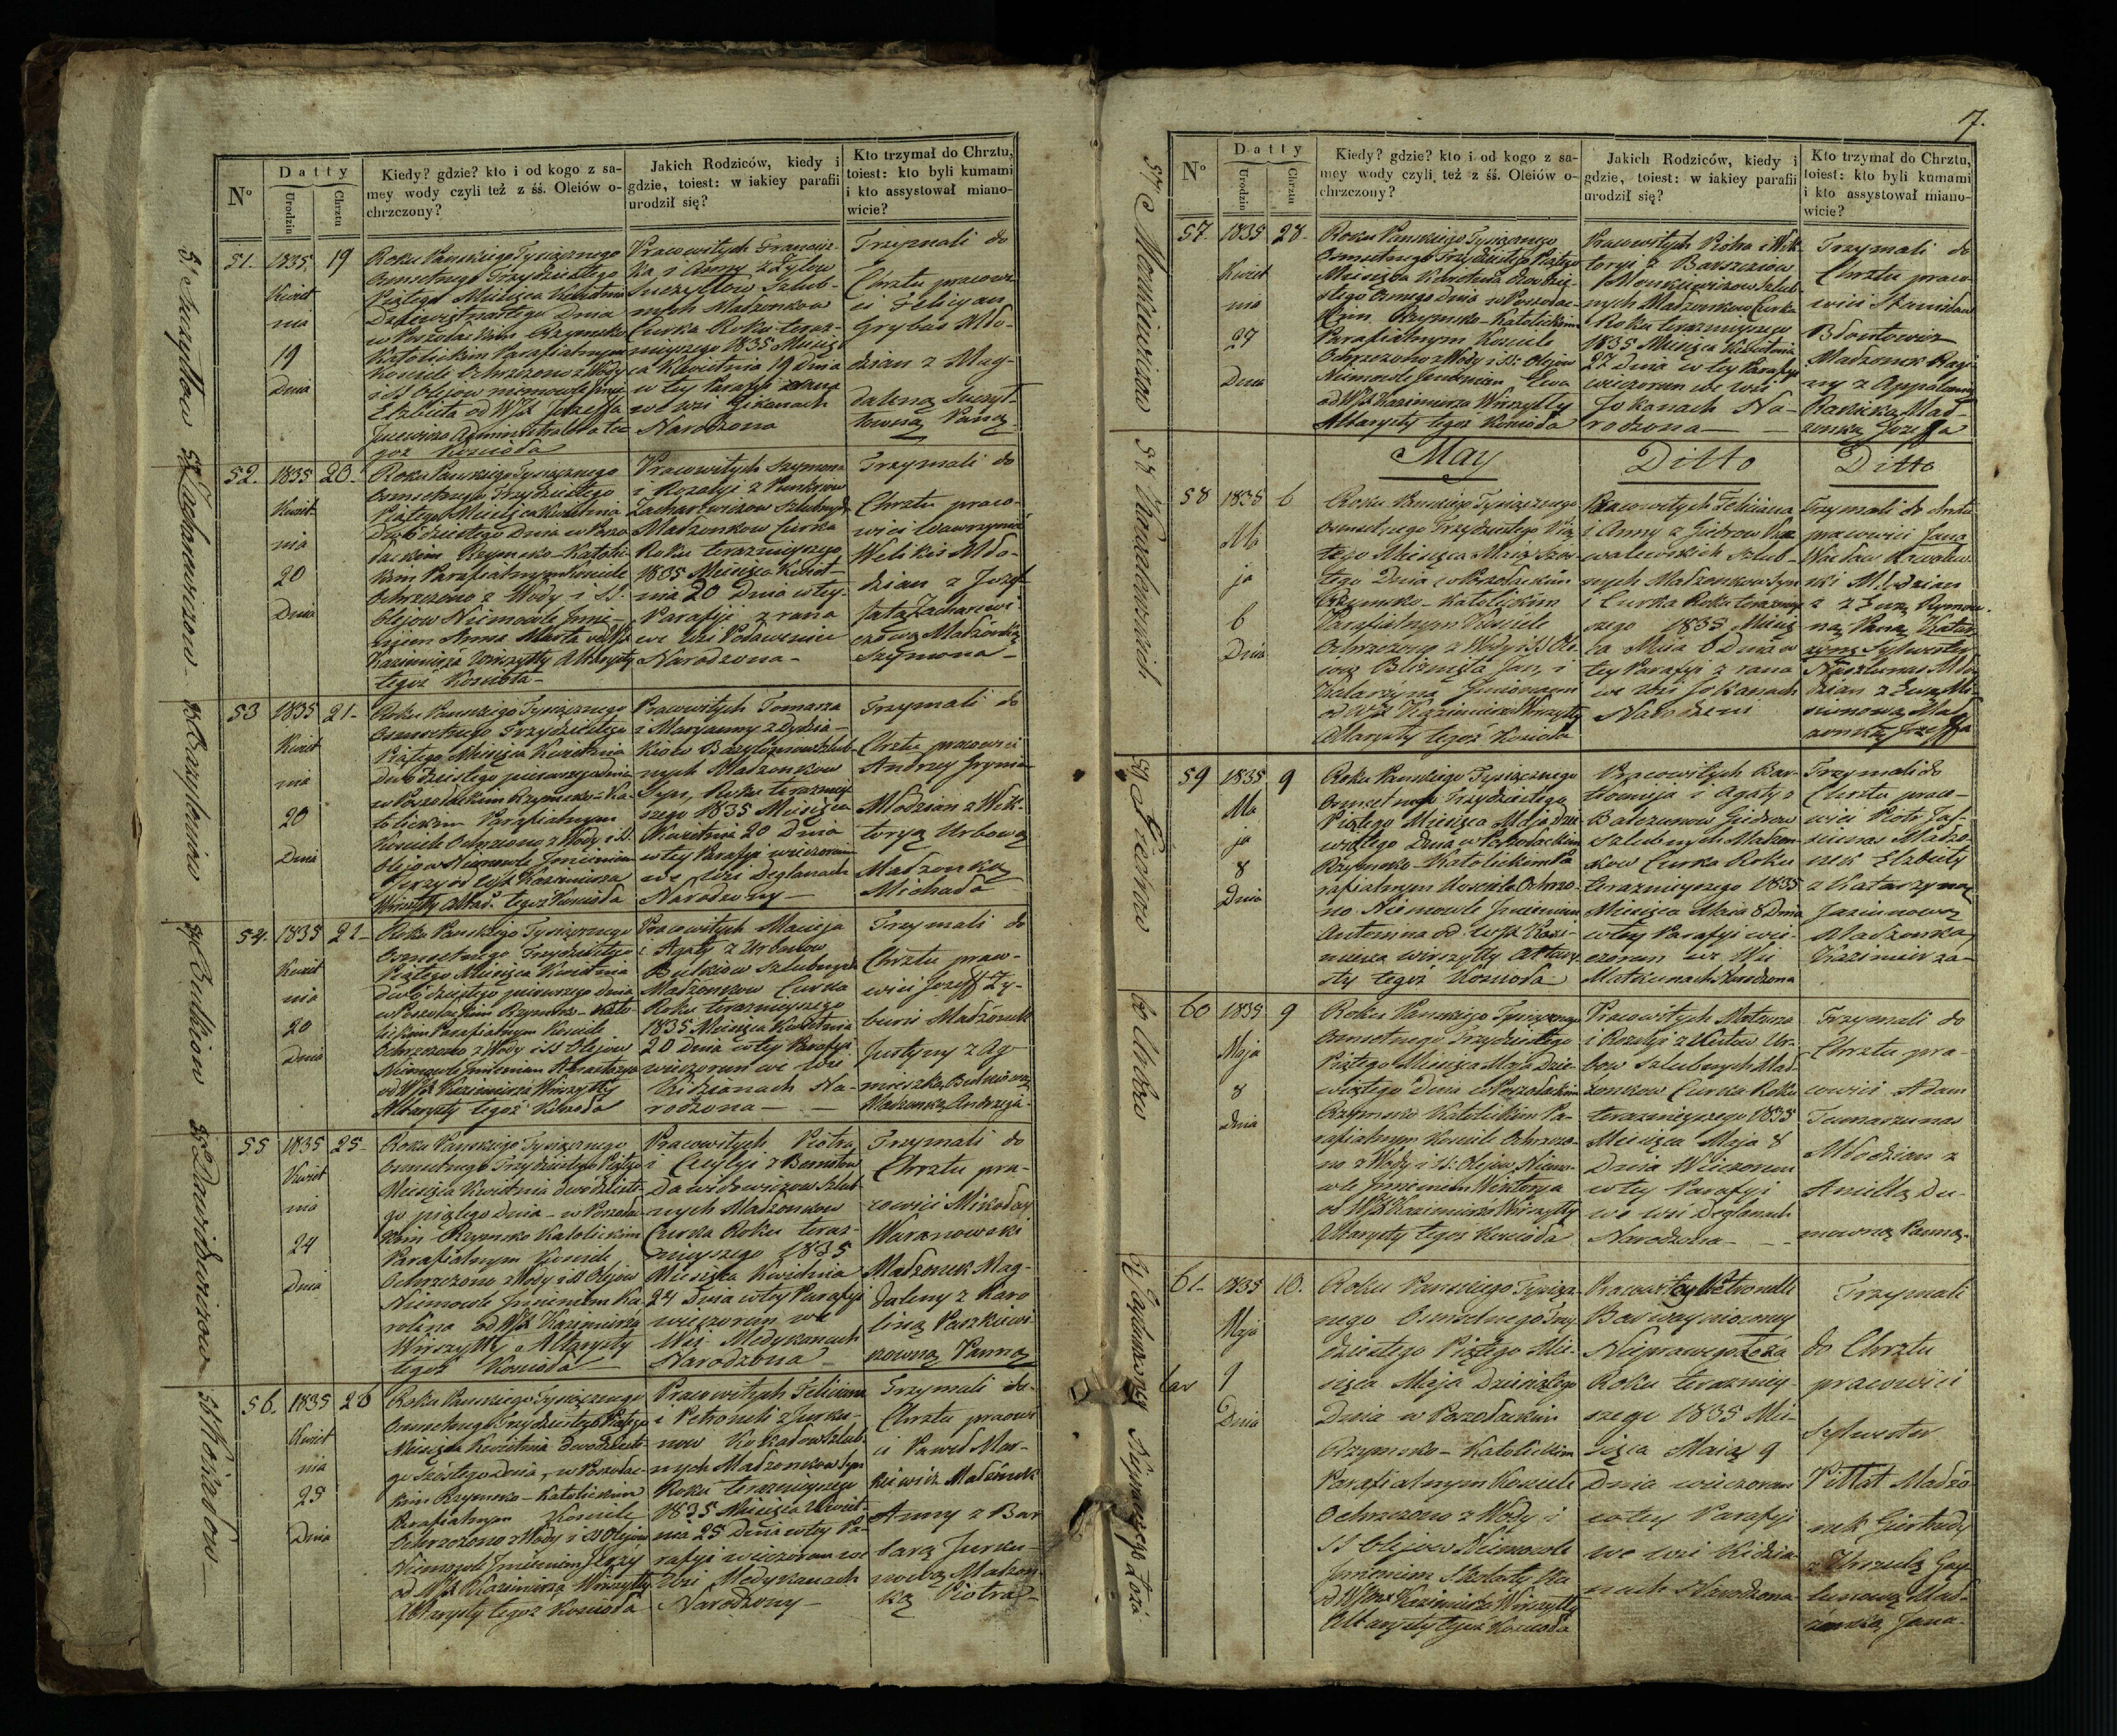 N°
Datty
Urodzin
Chrztu
Kiedy? gdzie? kto i od kogo z sa-
mey wody czyli też z śś. Oleiów o-
chrzczony?
Jakich Rodziców, kiedy i
gdzie, toiest: w iakiey parafii
urodził się?
Kto trzymał do Chrztu,
toiest: kto byli kumami
i kto assystował miano-
wicie?
51.
1835
Kwiet
nia
19
Dnia
19
Roku Panskiego Tysiącznego
Osmsetnego Trzydziestego
Piątego Miesiąca Kwietnia
Dziewiętnastego Dnia
w Poszołackim Rzymsko
Katolickim Parafialnym
Kosciele Ochrzczono z Wody
i SS Olejow niemowle Imie
Elzbieta od WJX Jozeffa
Administratora te
goż Kosciola
Pracowitych Francisz-
ka i Anny z Zylow
Suczyllow Szlub-
nych Malzonkow
Curka Roku teraz-
nieyszego 1835 Miesią
ca Kwietnia 19 Dnia
w tey Parafyi z rana
we Wsi Gikanach
Narodzona
Trzymali do
Chrztu pracowi
ci Felicyan
Grybas Mło-
dzian z Mag-
daleną Suczyl-
lowną Paną
52.
1835
Kwiet
nia
20
Dnia
20.
Roku Panskiego Tysiącznego
Osmsetnego Trzydziestego
Piątego Miesiąca Kwietnia
Dwódziestego Dnia w Poszo
lackim Rzymsko-Katolic
kim Parafialnym Kosciele
Ochrzczono z Wody i SS.
Olejow Niemowle Imie-
niem Anna Marta od WJX
Kazimierza Wirszylly Altarysty
tegoż Kosciola-
Pracowitych Szymona
i Rozalyi z Punksnow
Zacharewiczow Szlubnych
Malzonkow Curka
Roku teraznieyszego
1835 Miesiąca Kwiet-
nia 20 Dnia w tey-
Parafyi z rana
we Wsi Poławeniu
Narodzona-
Trzymali do
Chrztu praco-
wici Wawrzyniec
Welikis Mło-
dzian z Jozef
fatą Zacharewi
czową Malżonką
Szymona-
53
1835
Kwiet
nia
20
Dnia
21-
Roku Panskiego Tysiącznego
Osmsetnego Trzydziestego
Piątego Miesiąca Kwietnia
Dwódziestego pierwszego dnia
w Poszolackim Rzymsko-Ka-
tolickim Parafialnym
Kosciele Ochrzczono z Wody i SS.
Olejow Niemowle Imieniem
Jerzy od WJX Kazimierza
Wirszylly Altar. tegoż Kosciola
Pracowitych Tomasza
i Maryanny z Dydzia-
Bazylonow Szlub-
nych Malzonkow
Syn, Roku terazniey
szego 1835 Miesiąca
Kwietnia 20 Dnia
w tey Parafyi wieczorem
we Wsi Deglanach
Narodzony-
Trzymali do
Chrztu pracowici
Andrzey
Młodzian z Wik-
toryą Urbową
Malżonką
Michała
54.
1835
Kwiet
nia
20
Dnia
21-
Roku Panskiego Tysiącznego
Osmsetnego Trzydziestego
Piątego Miesiąca Kwietnia
Dwódziestego pierwszego dnia
w Poszolackim Rzymsko-Kato-
lickim Parafialnym Kosciele
Ochrzczono z Wody i SS Olejow
Niemowle Imieniem Anastazya
od WJX Kazimierza Wirszylly
Altarysty tegoż Kosciola
Pracowitych Macieja
i Agaty z Urbonow
Butkiow Szlubnych
Malzonkow Curka
Roku teraznieyszego
1835 Miesiąca Kwietnia
20 Dnia w tey Parafyi
wieczorem we Wsi
Kidzianach Na-
rodzona-
Trzymali do
Chrztu praco-
wici Jozeff Zy-
buris Malżonek
Justyny z Ag-
nieszką
Malżonką Andrzeja-
55
1835
Kwiet
nia
24
Dnia
25-
Roku Panskiego Tysiącznego
Osmsetnego Trzydziestego Piątego
Miesiąca Kwietnia Dwódzieste-
go piątego Dnia - w Poszolac
kim Rzymsko Katolickim
Parafialnym Kosciele
Ochrzczono z Wody i SS Olejow
Niemowle Imieniem Ka
rolina od WJX Kazimierza
Wirszylly Altarysty
tegoż Kosciola
Pracowitych Piotra
i Cecylyi z Bernotow
Dawidowiczow Szlub-
nych Malzonkow
Curka Roku teraz-
nieyszego 1835
Miesiąca Kwietnia
24 Dnia w tey Parafyi
wieczorem we
Wsi Medykanach
Narodzona-
Trzymali do
Chrztu pra-
cowici Mikołay
Waranowski
Malżonek Mag-
daleny z Karo
liną Paszkiewi-
czowną Panną
56.
1835
Kwiet
nia
25
Dnia
26
Roku Panskiego Tysiącznego
Osmsetnego Trzydziestego Piątego
Miesiąca Kwietnia Dwódzieste-
go Szóstego Dnia, w Poszolac-
kim Rzymsko-Katolickim
Parafialnym Kosciele
Ochrzczono z Wody i SS Olejow
Niemowle Imieniem Jerzy
od WJX Kazimierza Wirszylly
Altarysty tegoż Kosciola
Pracowitych Feliciana
i Petroneli z Jurku-
now Kokadow Szlub-
nych Malzonkow Syn
Roku teraznieyszego
1835 Miesiąca Kwiet-
nia 25 Dnia w tey Pa-
rafyi wieczorem we
Wsi Medykanach
Narodzony-
Trzymali do-
Chrztu pracowi
ci Paweł Mar-
kiewicz Malżonek
Anny z Bar
barą Jurku-
nową Malżon-
ką Piotra-
51 Suczyllow
52 Zacharewiczow
53 Bazylonow
54 Butkiow
55 Dawidowiczow
56 Kokadow
7.
N°
Datty
Urodzin
Chrztu
Kiedy? gdzie? kto i od kogo z sa-
mey wody czyli też z śś. Oleiów o-
chrzczony?
Jakich Rodziców, kiedy i
gdzie, toiest: w iakiey parafii
urodził się?
Kto trzymał do Chrztu,
toiest: kto byli kumami
i kto assystował miano-
wicie?
57.
1835
Kwiet
nia
27
Dnia
28-
Roku Panskiego Tysiącznego
Osmsetnego Trzydziestego Piątego
Miesiąca Kwietnia Dwódzie-
stego Osmego Dnia w Poszolac-
kim Rzymsko-Katolickim
Parafialnym Kosciele
Ochrzczono z Wody i SS. Olejow
Niemowle Imieniem Ewa
od WJX Kazimierza Wirszylly
Altarysty tegoż Kosciola
Pracowitych Piotra i Wik-
toryi z Barszciow
Monkiewiczow Szlub-
nych Malzonkow Curka
Roku teraznieyszego
1835 Miesiąca Kwietnia
27 Dnia w tey Parafyi
wieczorem we Wsi
Jokanach Na-
rodzona-
Trzymali do
Chrztu praco-
wici Stanisław
Malżonek
z Appolonią
Malżonką Jozeffa
May
Ditto
Ditto
58
1835
Ma
ja
6
Dnia
6
Roku Panskiego Tysiącznego
Osmsetnego Trzydziestego Pią
tego Miesiąca Maja Szós-
tego Dnia w Poszolackim
Rzymsko-Katolickim
Parafialnym Kosciele
Ochrzczono z Wody i SS Ole-
jow Bliznięta Jan, i
Katarzyna Imieniem
od WJX Kazimierza Wirszylly
Altarysty tegoż Kosciola
Pracowitych Feliciana
i Anny z Giedrow Kowa-
walewskich Szlub-
nych Malzonkow Syn
i Curka Roku terazniey-
szego 1835 Miesią
ca Maia 6 Dnia w
tey Parafyi z rana
we Wsi Jokanach
Narodzeni
Trzymali do Chrztu
pracowici Jana
Wacław Kowalew-
ski Młodzian
z Ewą
Panną Katar
zynę Sylwester
Mło
dzian z Ewą
Mal
żonką Jozeffa
59
1835
Ma
ja
8
Dnia
9
Roku Panskiego Tysiącznego
Osmsetnego Trzydziestego
Piątego Miesiąca Maja Dzie
wiątego Dnia w Poszolackim
Rzymsko-Katolickim Pa
rafialnym Kosciele Ochrzczo-
no Niemowle Imieniem
Antonina od WJX Kazi-
mierza Wirszylly Altary-
sty tegoż Kosciola
Pracowitych Bar-
tłomieja i Agaty z
Balczunow Giedrow
Szlubnych Malzon-
kow Curka Roku
teraznieyszego 1835
Miesiąca Maia 8 Dnia
w tey Parafyi wie-
czorem we Wsi
Matkunach Narodzona
Trzymali do
Chrztu praco-
wici Piotr
Malżo-
nek Elzbiety
z Katarzyną
Malżonką
Kazimierza-
60
1835
Maja
8
Dnia
9
Roku Panskiego Tysiącznego
Osmsetnego Trzydziestego
Piątego Miesiąca Maja Dzie-
wiątego Dnia w Poszolackim
Rzymsko Katolickim Pa-
rafialnym Kosciele Ochrzczo-
no z Wody i SS. Olejow Niemo-
wle Imieniem Wiktorya
od WJX Kazimierza Wirszylly
Altarysty tegoż Kosciola
Pracowitych Mateusza
i Rozalyi z Ur-
bow Szlubnych Mal-
żonkow Curka Roku
teraznieyszego 1835
Miesiąca Maja 8
Dnia Wieczorem
w tey Parafyi
we wsi Deglanach
Narodzona-
Trzymali do
Chrztu pra-
cowici Adam
Tumaszunas
Młodzian z
Anielą Du-
mowną Panną-
61-
1835
Maja
9
Dnia
10.
Roku Panskiego Tysiącz-
nego Osmsetnego Trzy
dziestego Piątego Mie-
siąca Maja Dziesiątego
Dnia w Poszolackim
Rzymsko-Katolickim
Parafialnym Kosciele
Ochrzczono z Wody i
SS Olejow Niemowle
Imieniem
od WJX Kazimierza Wirszylly
Altarysty tegoż Kosciola
Pracowitey Petroneli
Nieprawego Łoża
Roku terazniey-
szego 1835 Mie-
siąca Maią 9
Dnia wieczorem
w tey Parafyi
we wsi Kidzia-
nach Narodzona
Trzymali
do Chrztu
pracowici
Sylwester
Pillat Malżo
nek Giertrudy
z Urszulą
Mal-
żonką Jana-
57 Monkiewiczow
58 Kowalewskich
59 Giedrow
60 Urbow
Nieprawego Łoża